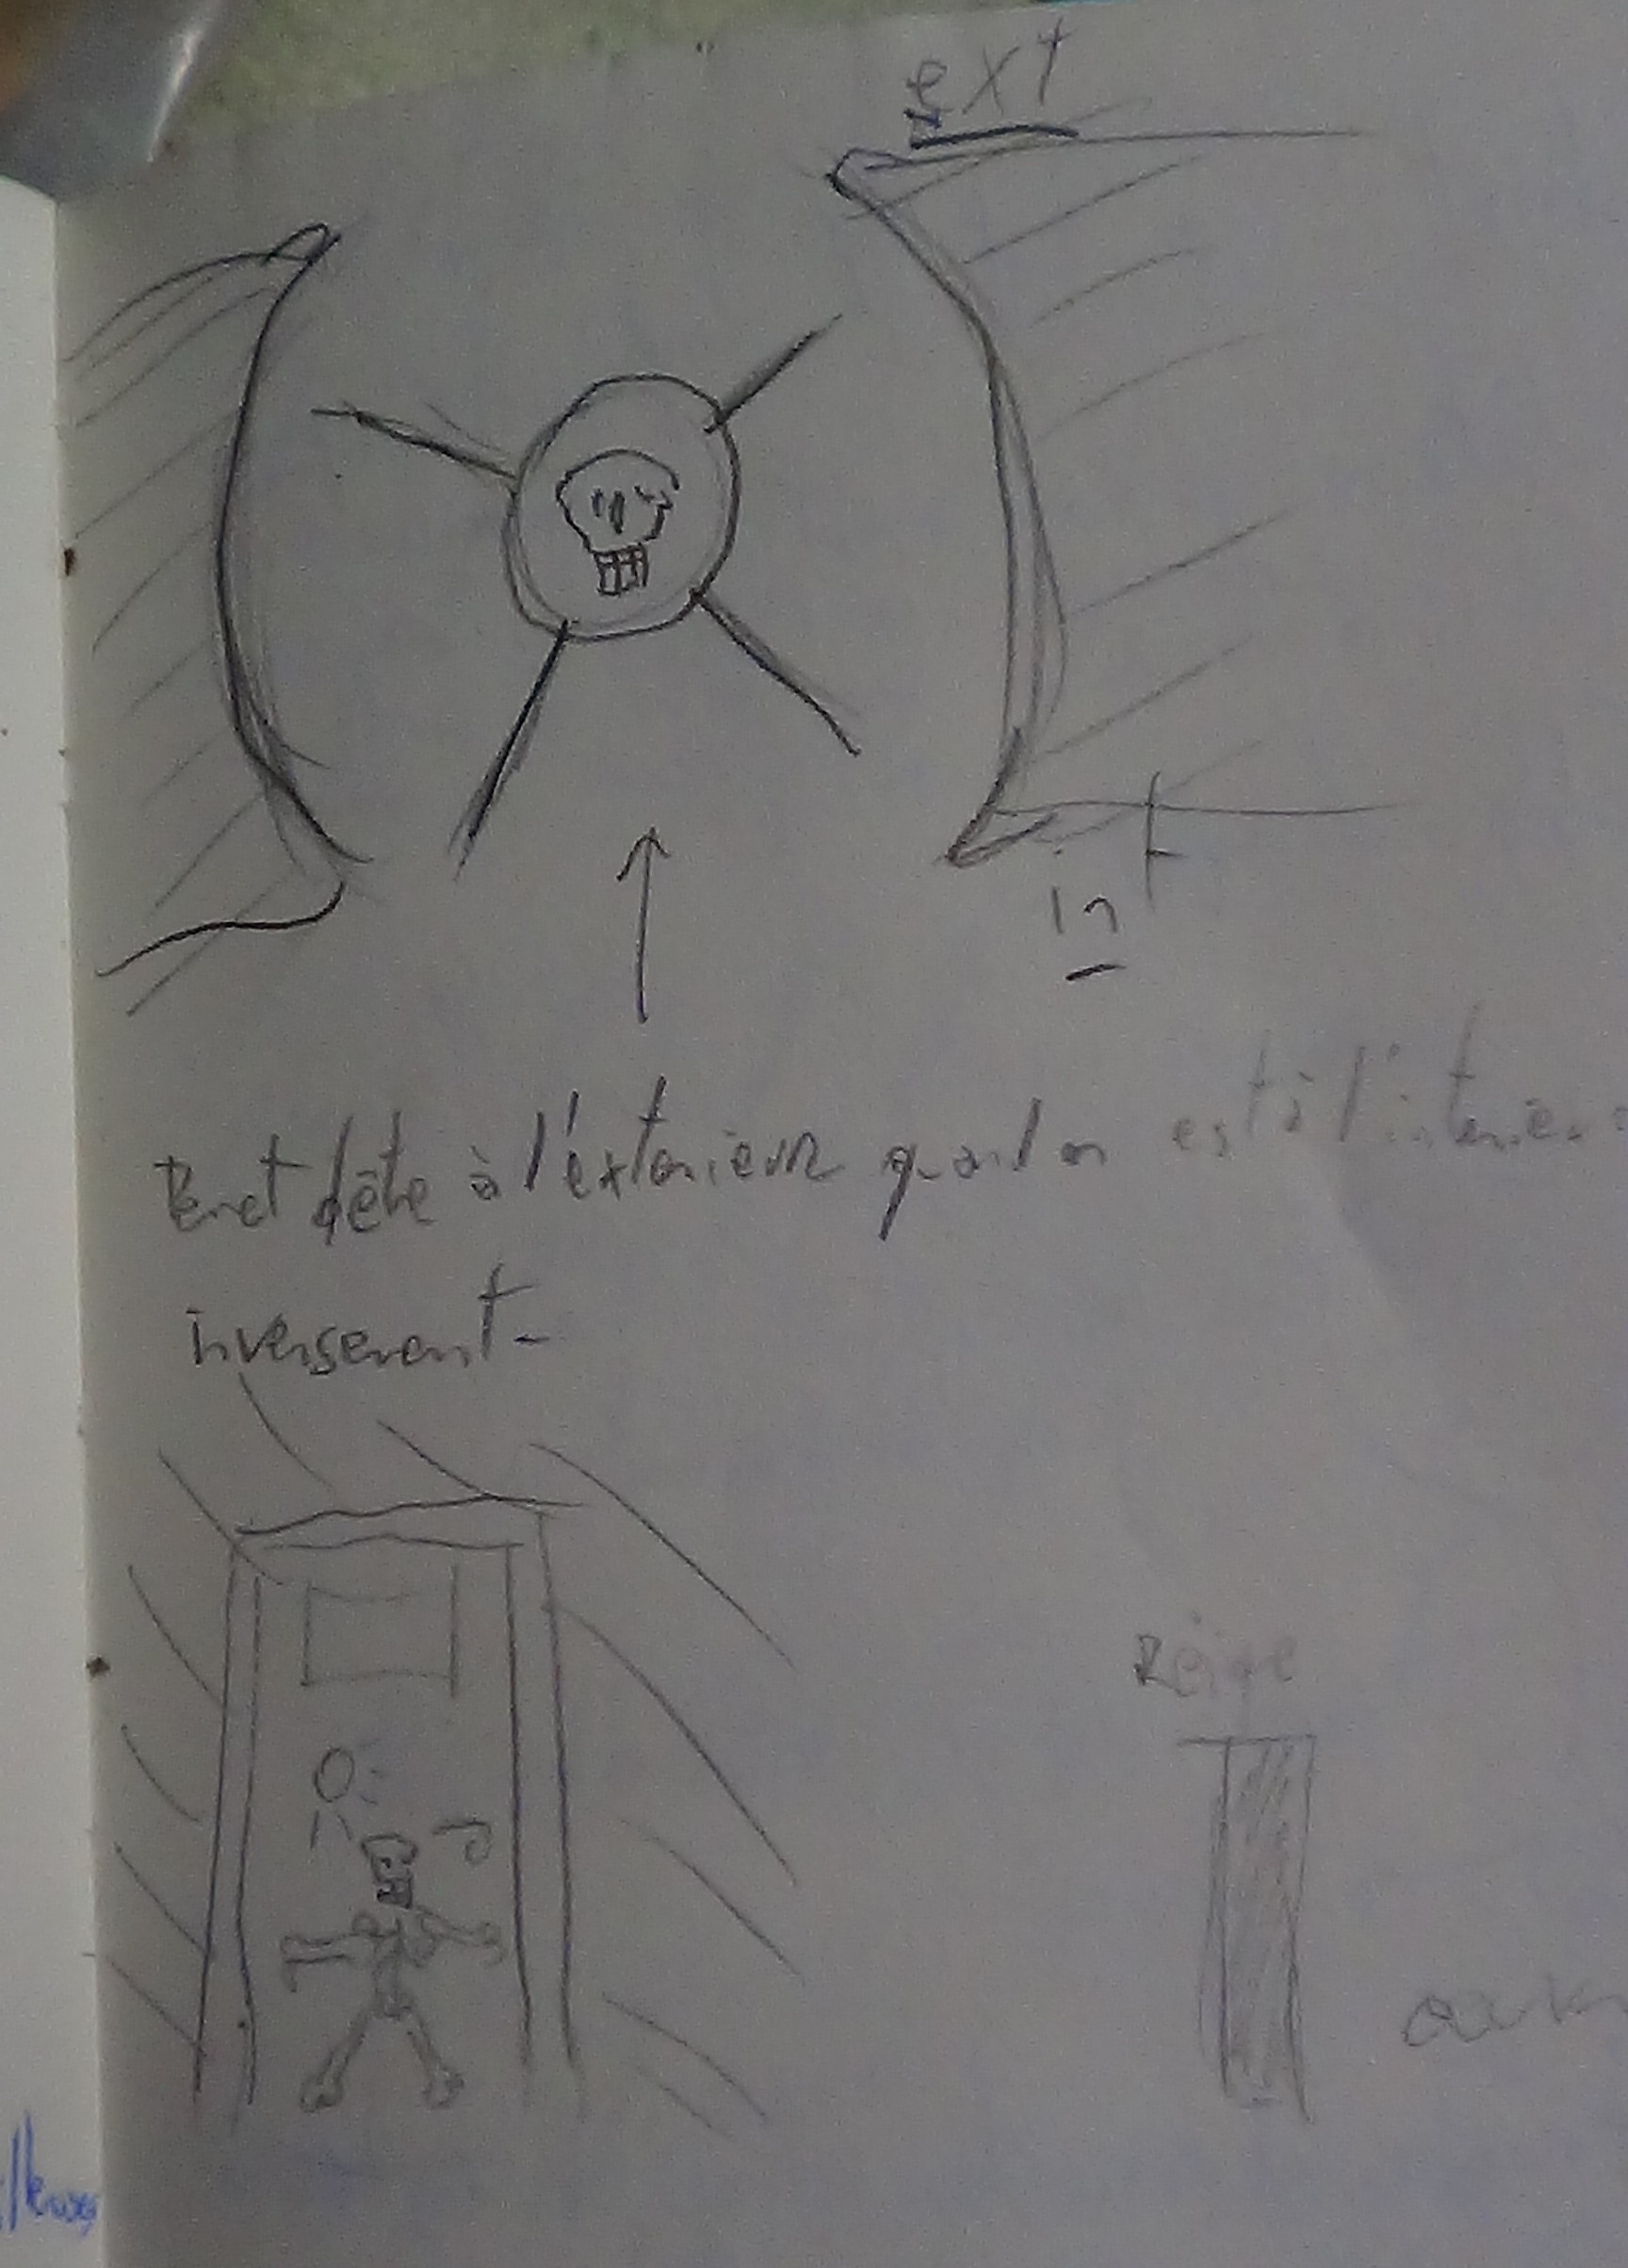 ext
int
Permet d'être à l'éxterieur quand on est à l'interieur
inversement.